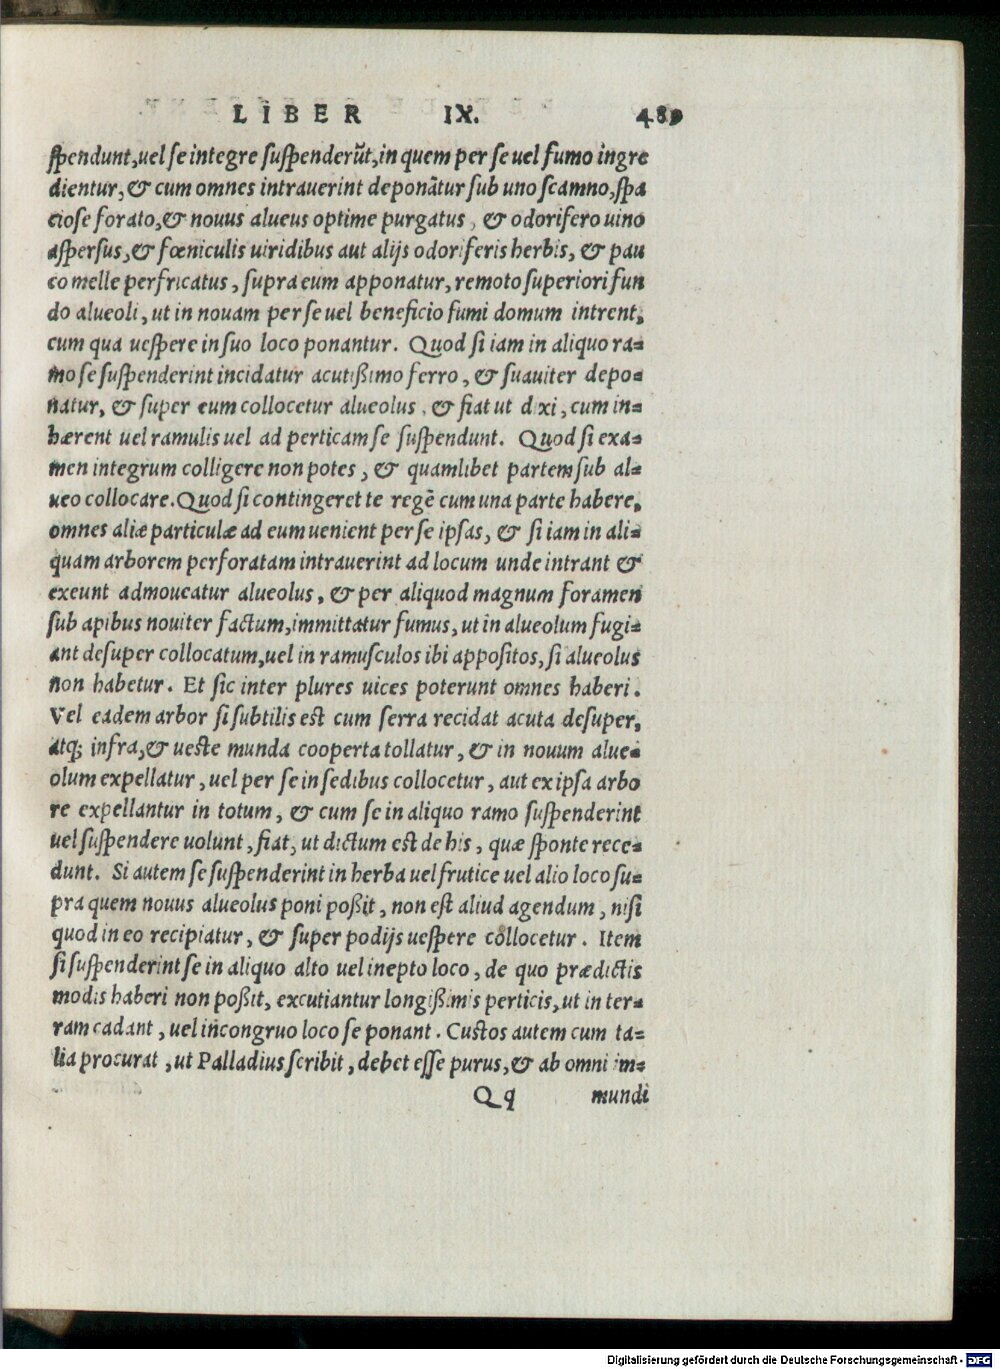 LIBER IX. 489
spendunt, uel se integre suspenderūt, in quem per se uel fumo ingre
dientur, & cum omnes intrauerint deponātur sub uno scamno, spa
ciose forato, & nouus alueus optime purgatus, & odorifero uino
aspersus, & fœniculis uiridibus aut alijs odoriferis herbis, & pau
co melle perfricatus, supra eum apponatur, remoto superiori fun
do alueoli, ut in nouam per se uel beneficio fumi domum intrent,
cum qua uespere in suo loco ponantur. Quod si iam in aliquo ra=
mo se suspenderint incidatur acutißimo ferro, & suauiter depo=
natur, & super eum collocetur alueolus, & fiat ut dixi, cum in=
hærent uel ramulis uel ad perticam se suspendunt. Quod si exa=
men integrum colligere non potes, & quamlibet partem sub al=
ueo collocare. Quod si contingeret te regē cum una parte habere,
omnes aliæ particulæ ad eum uenient per se ipsas, & si iam in ali=
quam arborem perforatam intrauerint ad locum unde intrant &
exeunt admoueatur alueolus, & per aliquod magnum foramen
sub apibus nouiter factum, immittatur fumus, ut in alueolum fugi=
ant desuper collocatum, uel in ramusculos ibi appositos, si alueolus
non habetur. Et sic inter plures uices poterunt omnes haberi.
Vel eadem arbor si subtilis est cum serra recidat acuta desuper,
atq; infra, & ueste munda cooperta tollatur, & in nouum alue=
olum expellatur, uel per se in sedibus collocetur, aut ex ipsa arbo
re expellantur in totum, & cum se in aliquo ramo suspenderint
uel suspendere uolunt, fiat, ut dictum est de his, quæ sponte rece=
dunt. Si autem se suspenderint in herba uel frutice uel alio loco su=
pra quem nouus alueolus poni poßit, non est aliud agendum, nisi
quod in eo recipiatur, & super podijs uespere collocetur. Item
si suspenderint se in aliquo alto uel inepto loco, de quo prædictis
modis haberi non poßit, excutiantur longißimis perticis, ut in ter=
ram cadant, uel in congruo loco se ponant. Custos autem cum ta=
lia procurat, ut Palladius scribit, debet esse purus, & ab omni im=
Qq mundi
Digitalisierung gefördert durch die Deutsche Forschungsgemeinschaft - DFG